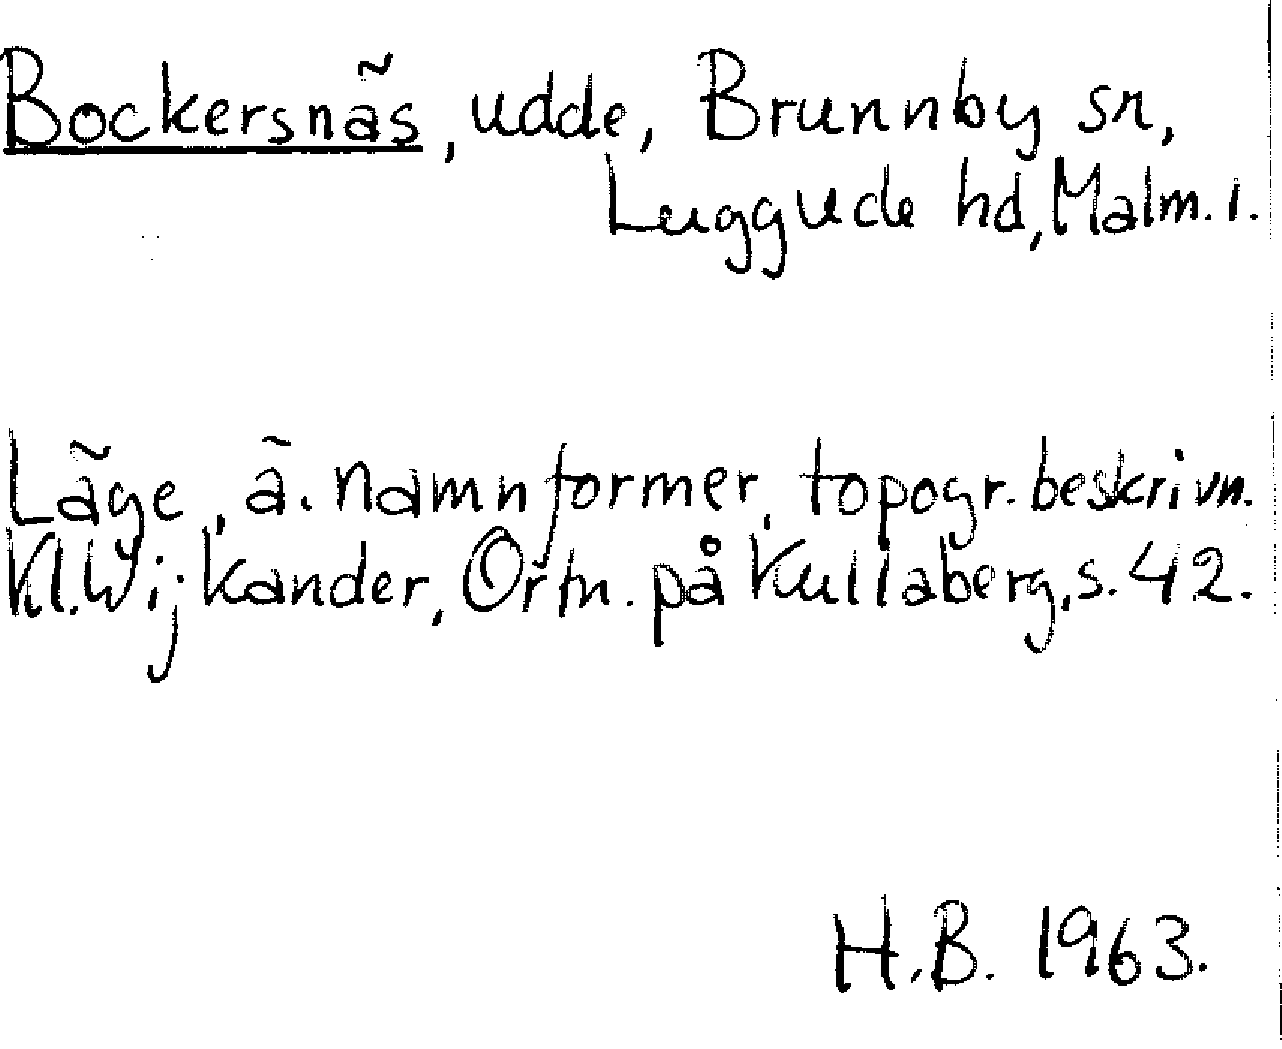 Bockersnäs, udde, Brunnby sn,
Luggude hd, Malm. l.
Läge, ä. namnformer, topogr. beskrivn.
Kl. Wijkander, Ortn. på Kullaberg, s. 42.
H.B. 1963.